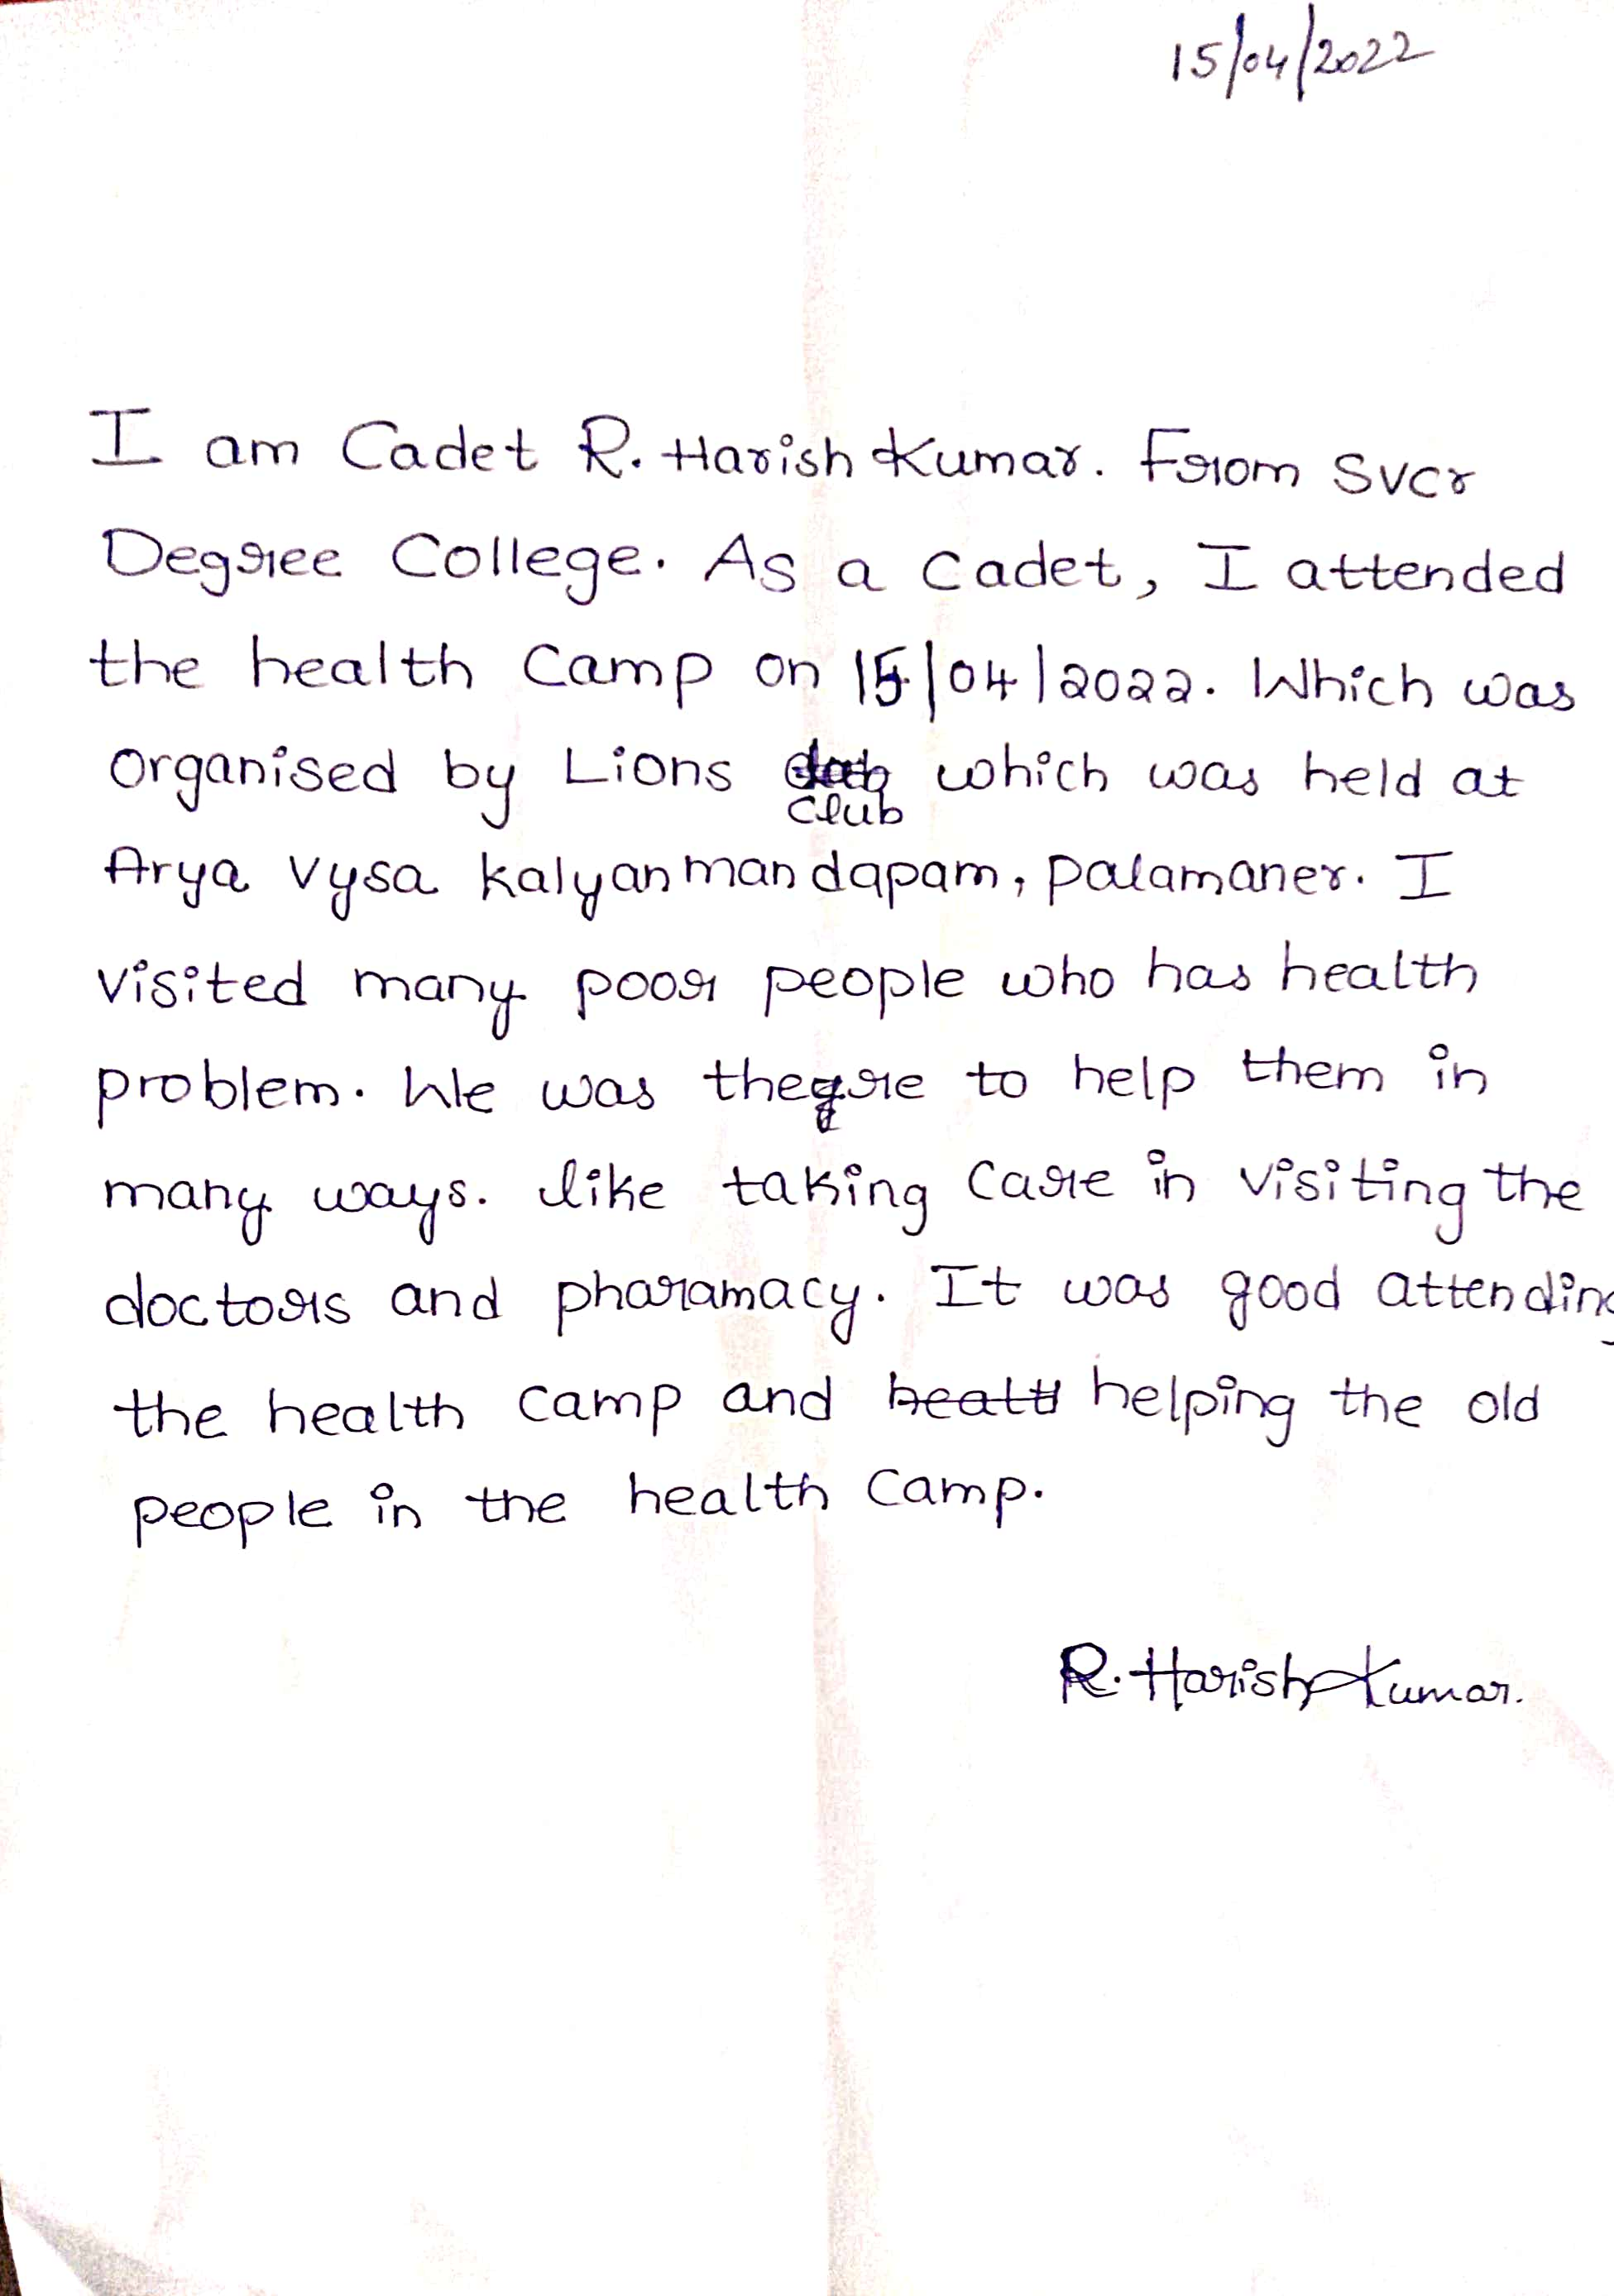 15/04/2022
I am Cadet R. Harish Kumar. From SVCr
Degree College. As a Cadet, I attended
the health Camp on 15/04/2022. Which was
Organised by Lions Club which was held at
Arya Vysa kalyanmandapam, palamaner. I
visited many poor people who has health
problem. We was there to help them in
many ways. like taking Care in visiting the
doctors and pharamacy. It was good attending
the health camp and helping the old
people in the health Camp.
R. Harish Kumar.